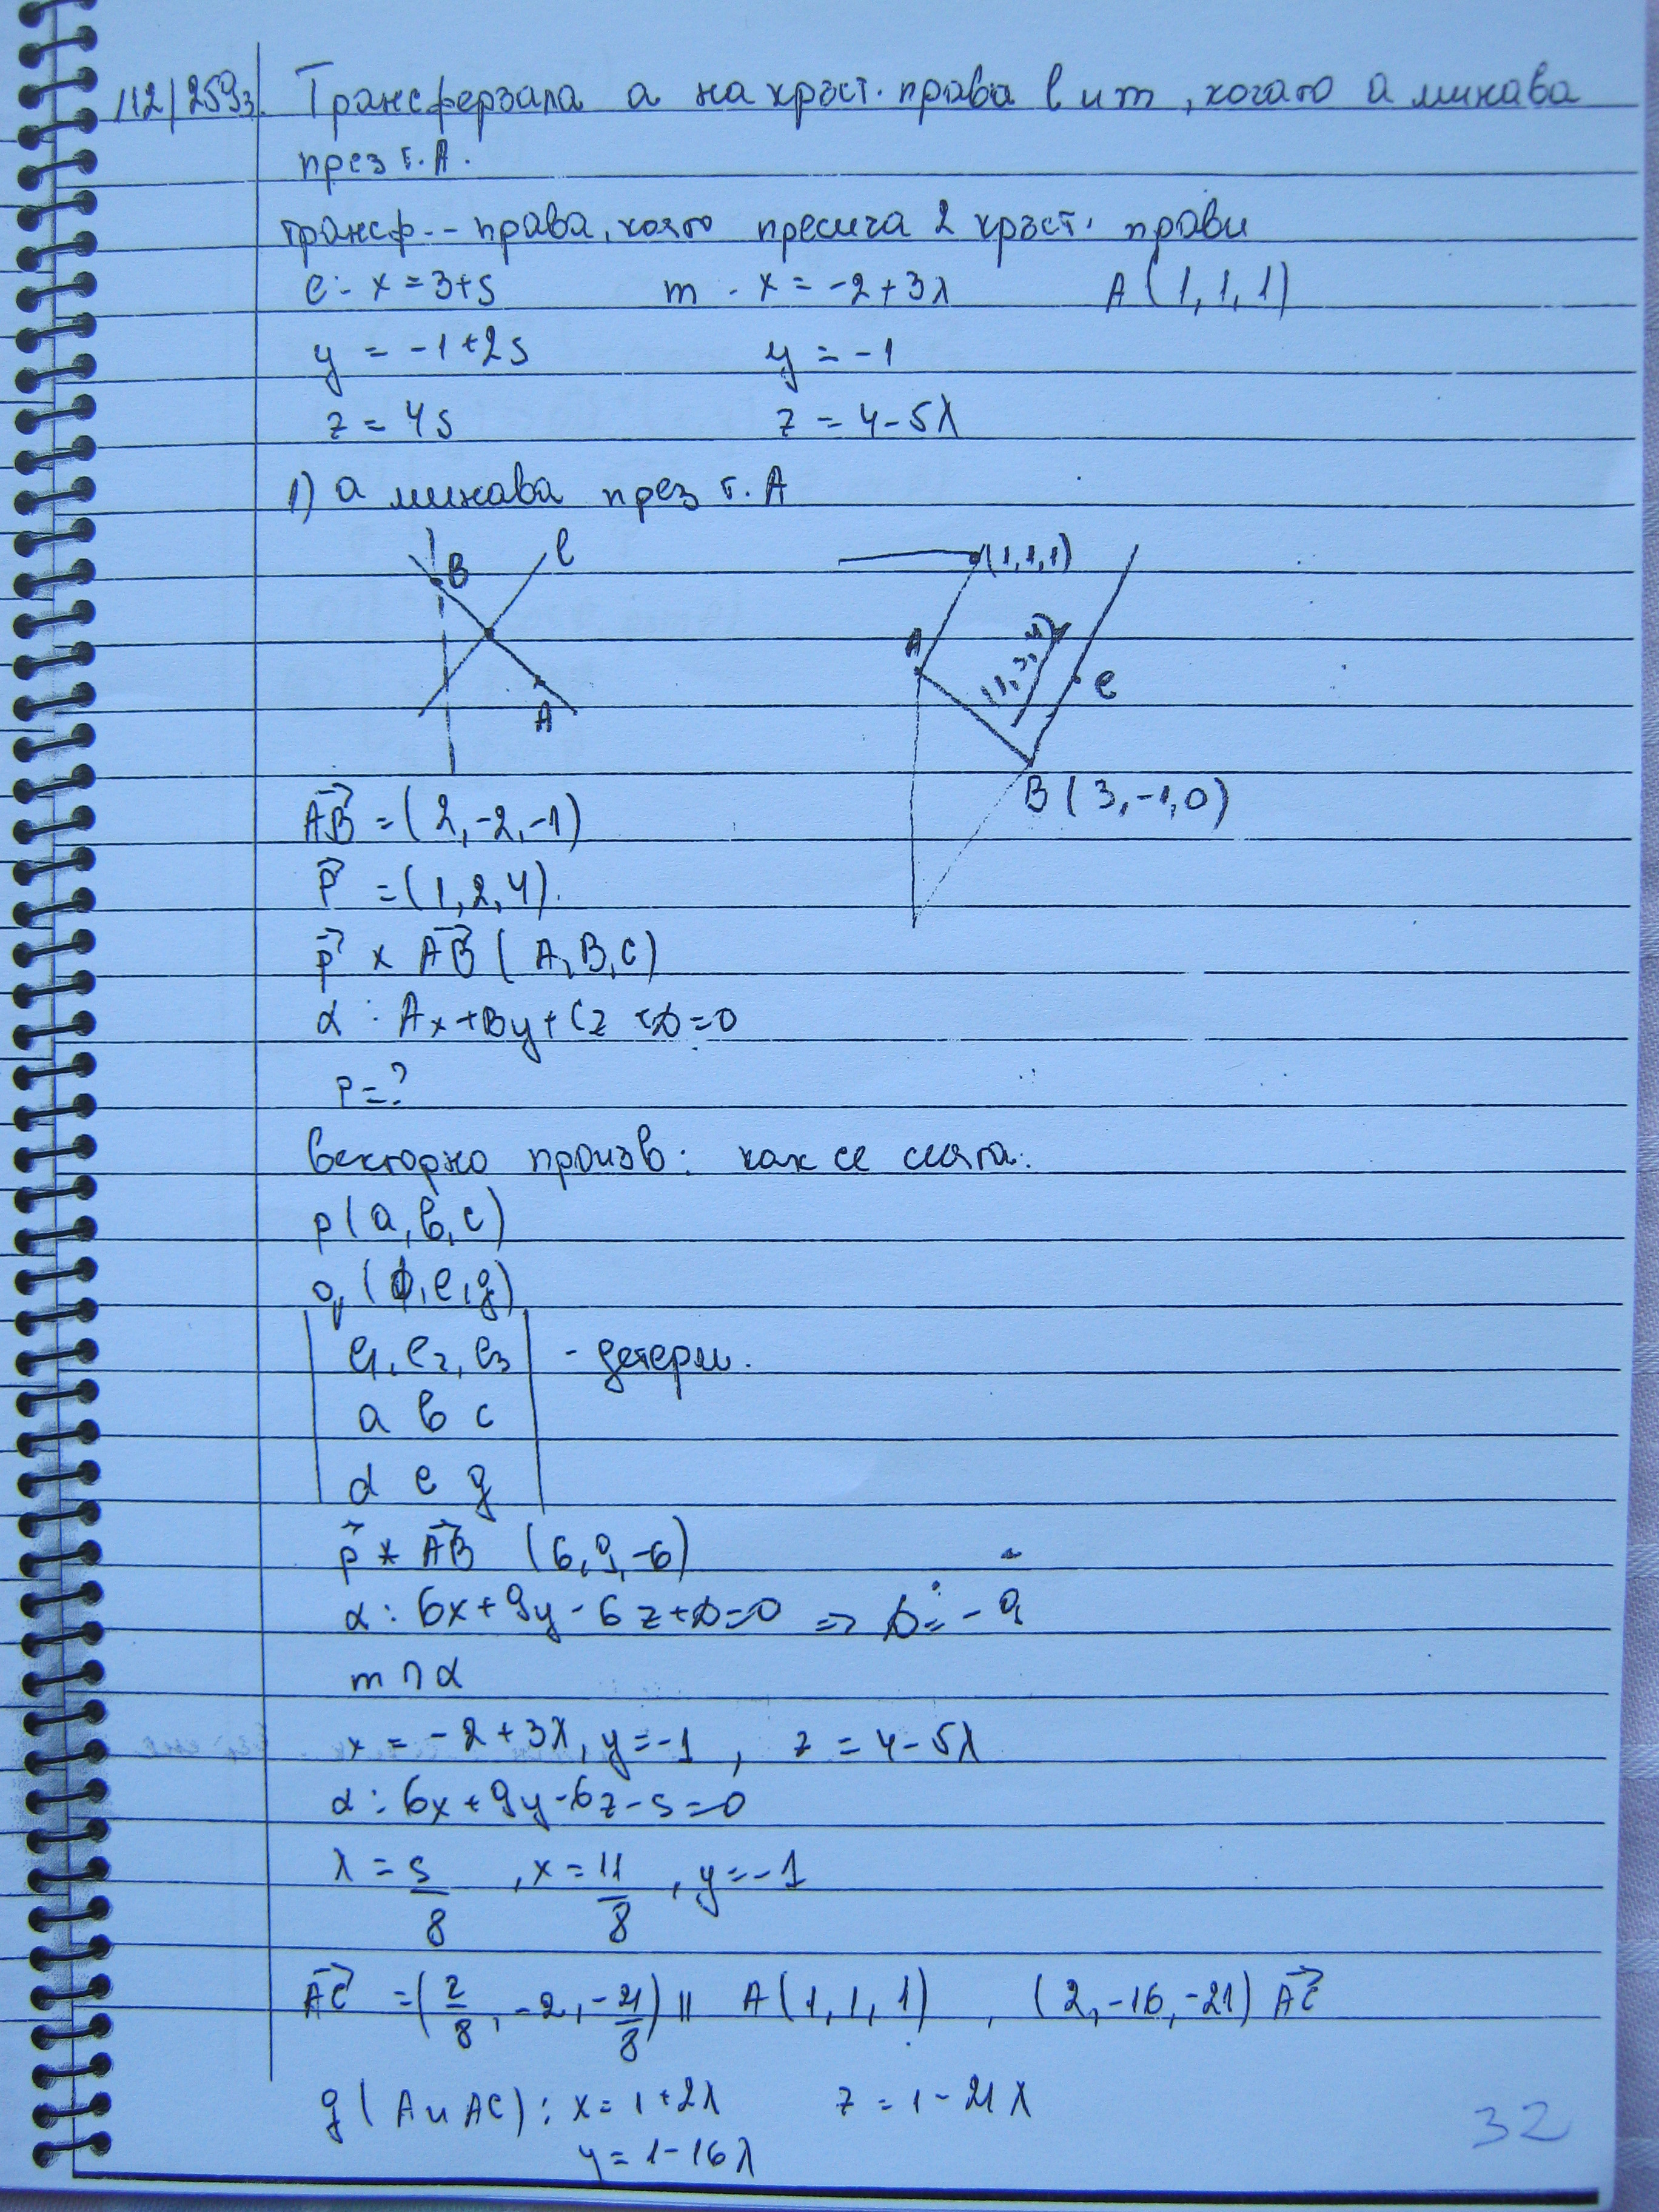 112/259з. Трансферзала a на кръст. права l и m, когато a минава
през т. A.
трансф. - права, която пресича 2 кръст. прави
l: x = 3+s m - x = -2+3λ A(1,1,1)
y = -1+2s y = -1
z = 4s z = 4-5λ
1) a минава през т. A
B l (1,1,1)
A e
A
B(3,-1,0)
AB = (2,-2,-1)
p = (1,2,4).
p x AB (A,B,C)
α: Ax+By+Cz+D=0
P=?
векторно произв: как се смята:
p(a,b,c)
q(d,e,g)
|e1, e2, e3| - детерм.
a b c
d e g
p * AB (6,9,-6)
α: 6x+9y-6z+D=0 => D=-9
m∩α
x = -2+3λ, y=-1, z=4-5λ
α: 6x+9y-6z-s=0
λ = 5/8, x = 11/8, y=-1
AC = (2/8, -2, -21/8) || A(1,1,1), (2,-16,-21) AC
g(A и AC): x=1+2λ z=1-21λ
y=1-16λ
32